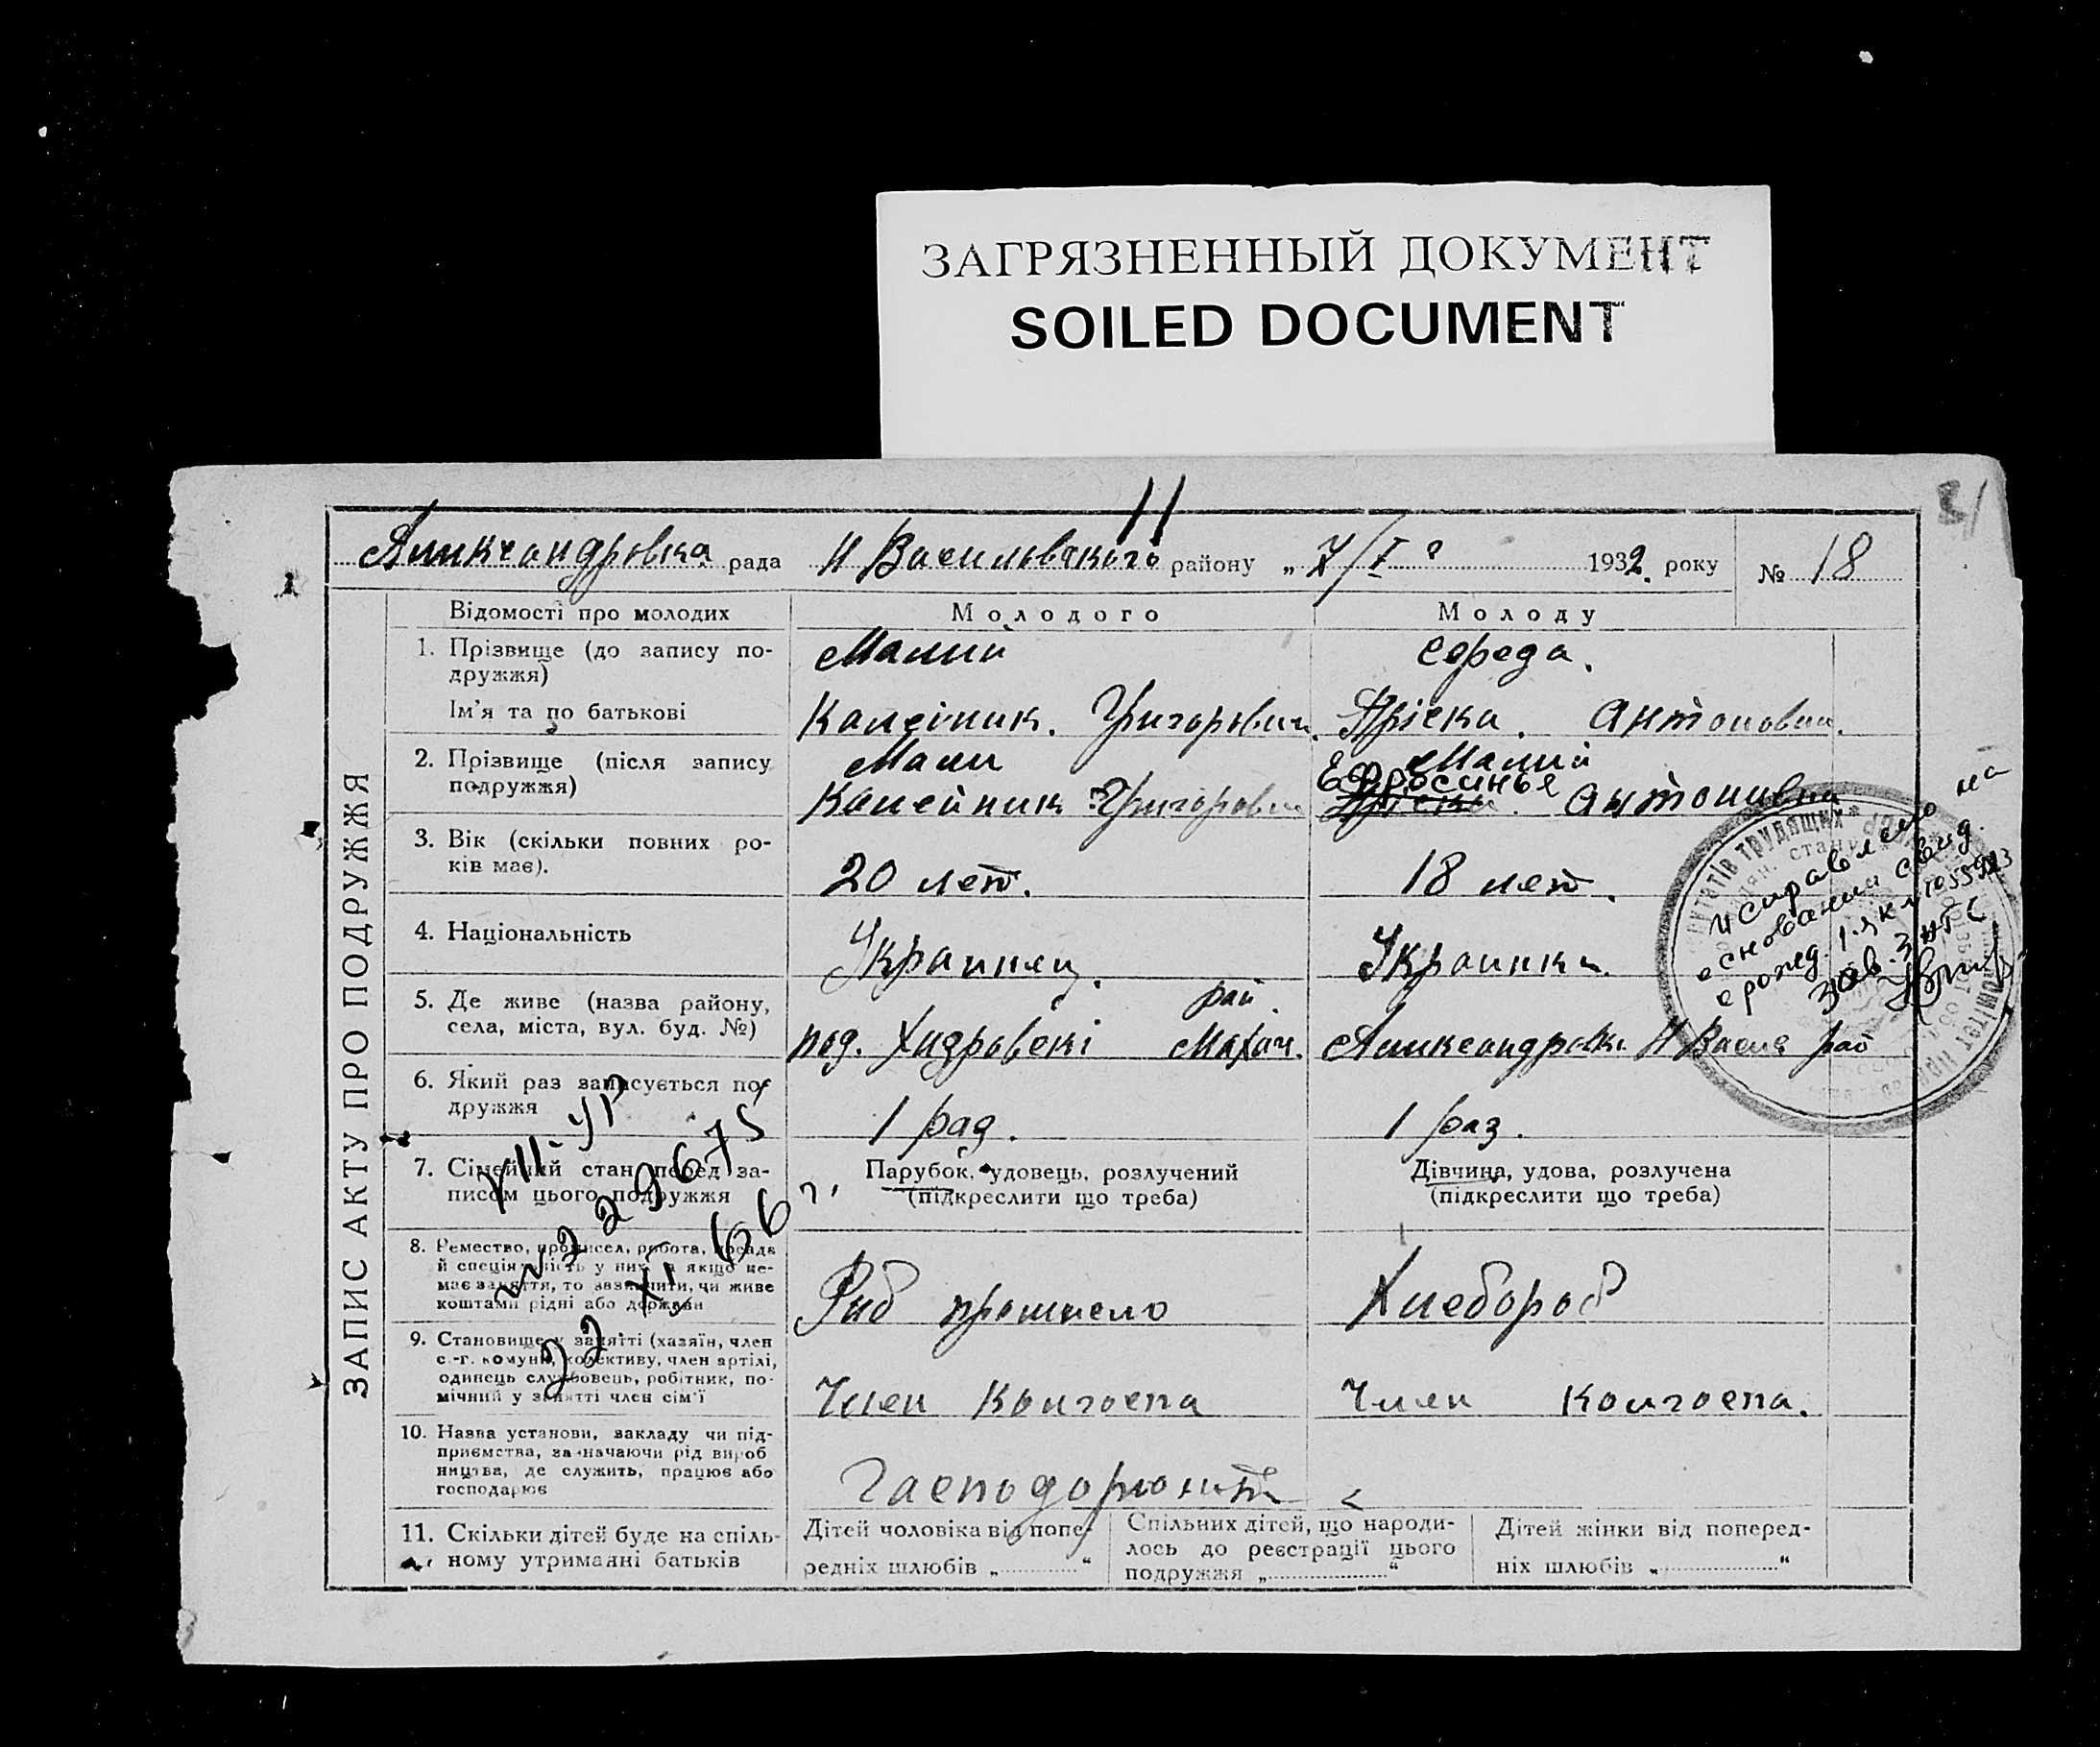 ЗАГРЯЗНЕННЫЙ ДОКУМЕНТ
SOILED DOCUMENT
11
Александровка рада Н Васильевского району „ 7/I 1932. року № 18
ЗАПИС АКТУ ПРО ПОДРУЖЖЯ
Відомості про молодих Молодого Молоду
1. Прізвище (до запису по-
дружжя)
Малий Середа.
Ім'я та по батькові Григорович. Антоновна.
2. Прізвище (після запису
подружжя)
Мали Малий
Ефросинья
Григорович Антоновна
3. Вік (скільки повних ро-
ків має).
20 лет. 18 лет.
4. Національність Украинец. Украинка.
5. Де живе (назва району,
села, міста, вул. буд. №)
рай.
Александровка Н Васил рай
6. Який раз записується по-
дружжя
1 раз. 1 раз.
7. Сімейний стан перед за-
писом цього подружжя
Парубок, удовець, розлучений
(підкреслити що треба)
Дівчина, удова, розлучена
(підкреслити що треба)
8. Ремество, промисел, робота, посада
й спеціяльність у них, а якщо не-
має заняття, то зазначити, чи живе
коштами рідні або держави
Хлебороб
9. Становище у занятті (хазяїн, член
с.-г. комуни, колективу, член артілі,
одинець службовець, робітник, по-
мічний у занятті член сім'ї
Член Колгоспа Член Колгоспа.
10. Назва установи, закладу чи під-
приємства, зазначаючи рід вироб
ництва, де служить, працює або
господарює
11. Скільки дітей буде на спіль-
ному утриманні батьків
Дітей чоловіка від попе-
редніх шлюбів „ “
Спільних дітей, що народи-
лось до реєстрації цього
подружжя „ “
Дітей жінки від поперед-
ніх шлюбів „ “
VII-УР
№ 329675
22 XI 66 г.
исправлено на
основании свид.
о рожд.
зав. ЗАГС